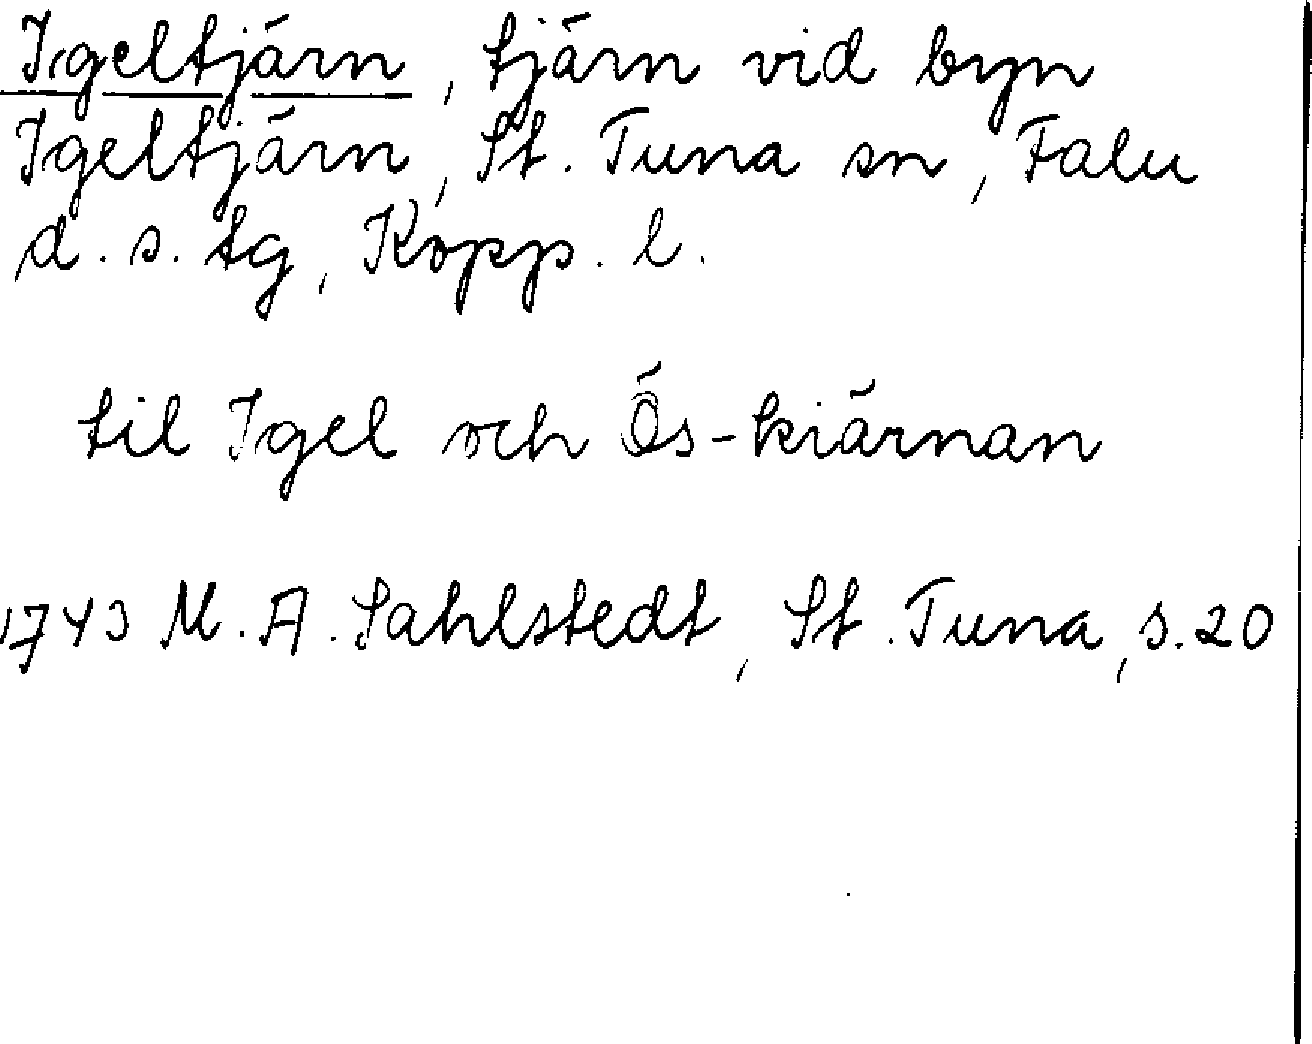 Igeltjärn, tjärn vid byn
Igeltjärn, St. Tuna sn, Falu
d. s. tg, Kopp. l.
til Igel och Ös-kiärnan
1743 M. A. Sahlstedt, St. Tuna, s. 20